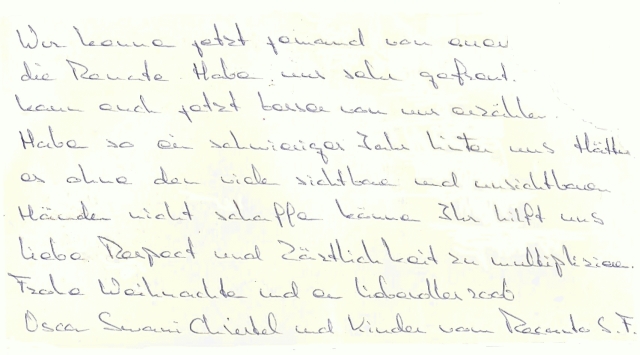 Wir kenne jetzt jemand von euer
die Renate. Habe uns sehr gefreut.
kann euch jetzt besser von uns erzähler
Habe so ein schwieriges Jahr hinter uns Hätte
es ohne den viele sichtbare und unsichtbaren
Händen nicht schaffe könne Ihr hilft uns
liebe Respect und Zärtlichkeit zu multiplizieren.
Frohe Weihnachte und en
Oscar Swami Christel und Kinder vom Recanto S.F.